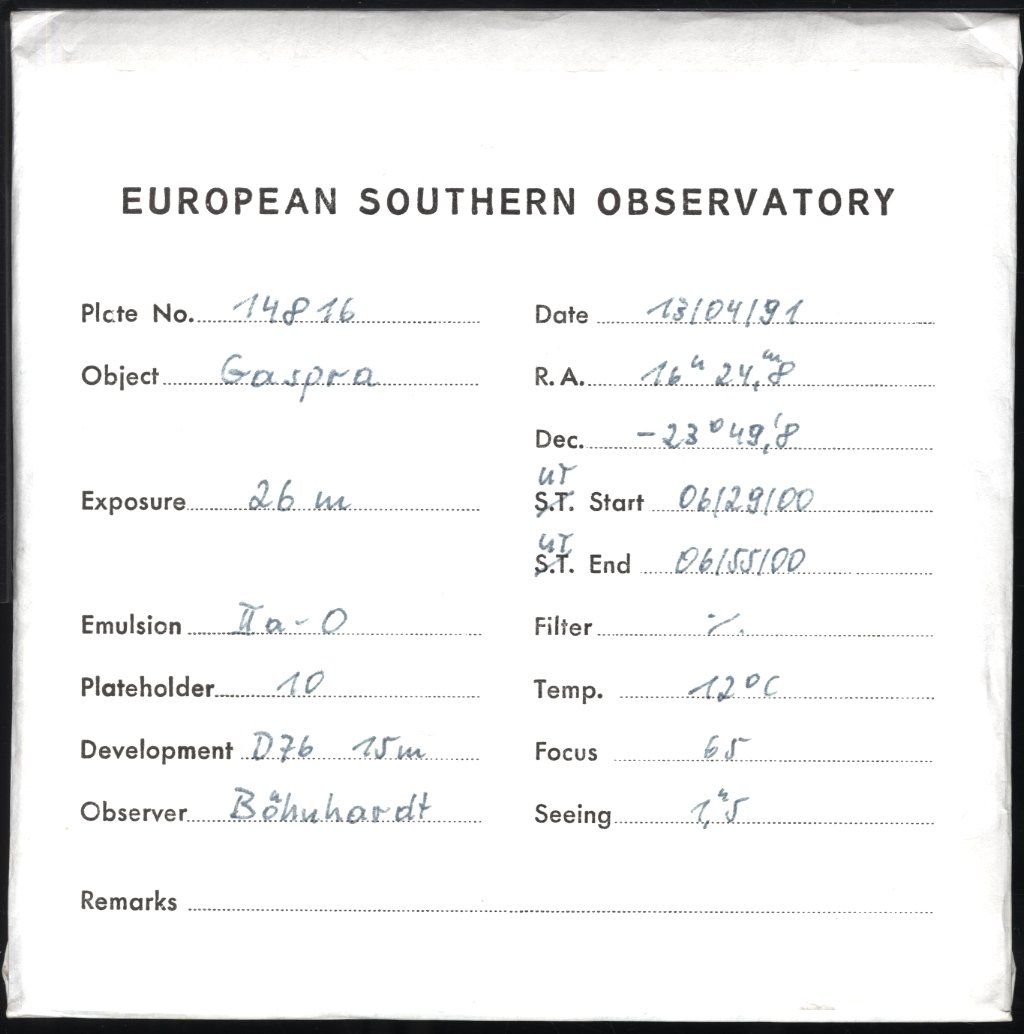 EUROPEAN SOUTHERN OBSERVATORY
Plate No. 14816 Date 13/04/91
Object Gaspra R.A. 16h 24,m8
Dec. -23°49,'8
UT
Exposure 26 m S.T. Start 06/29/00
UT
S.T. End 06/55/00
Emulsion IIa-O Filter ·/.
Plateholder 10 Temp. 12°C
Development D76 15m Focus 65
Observer Böhnhardt Seeing 1,"5
Remarks